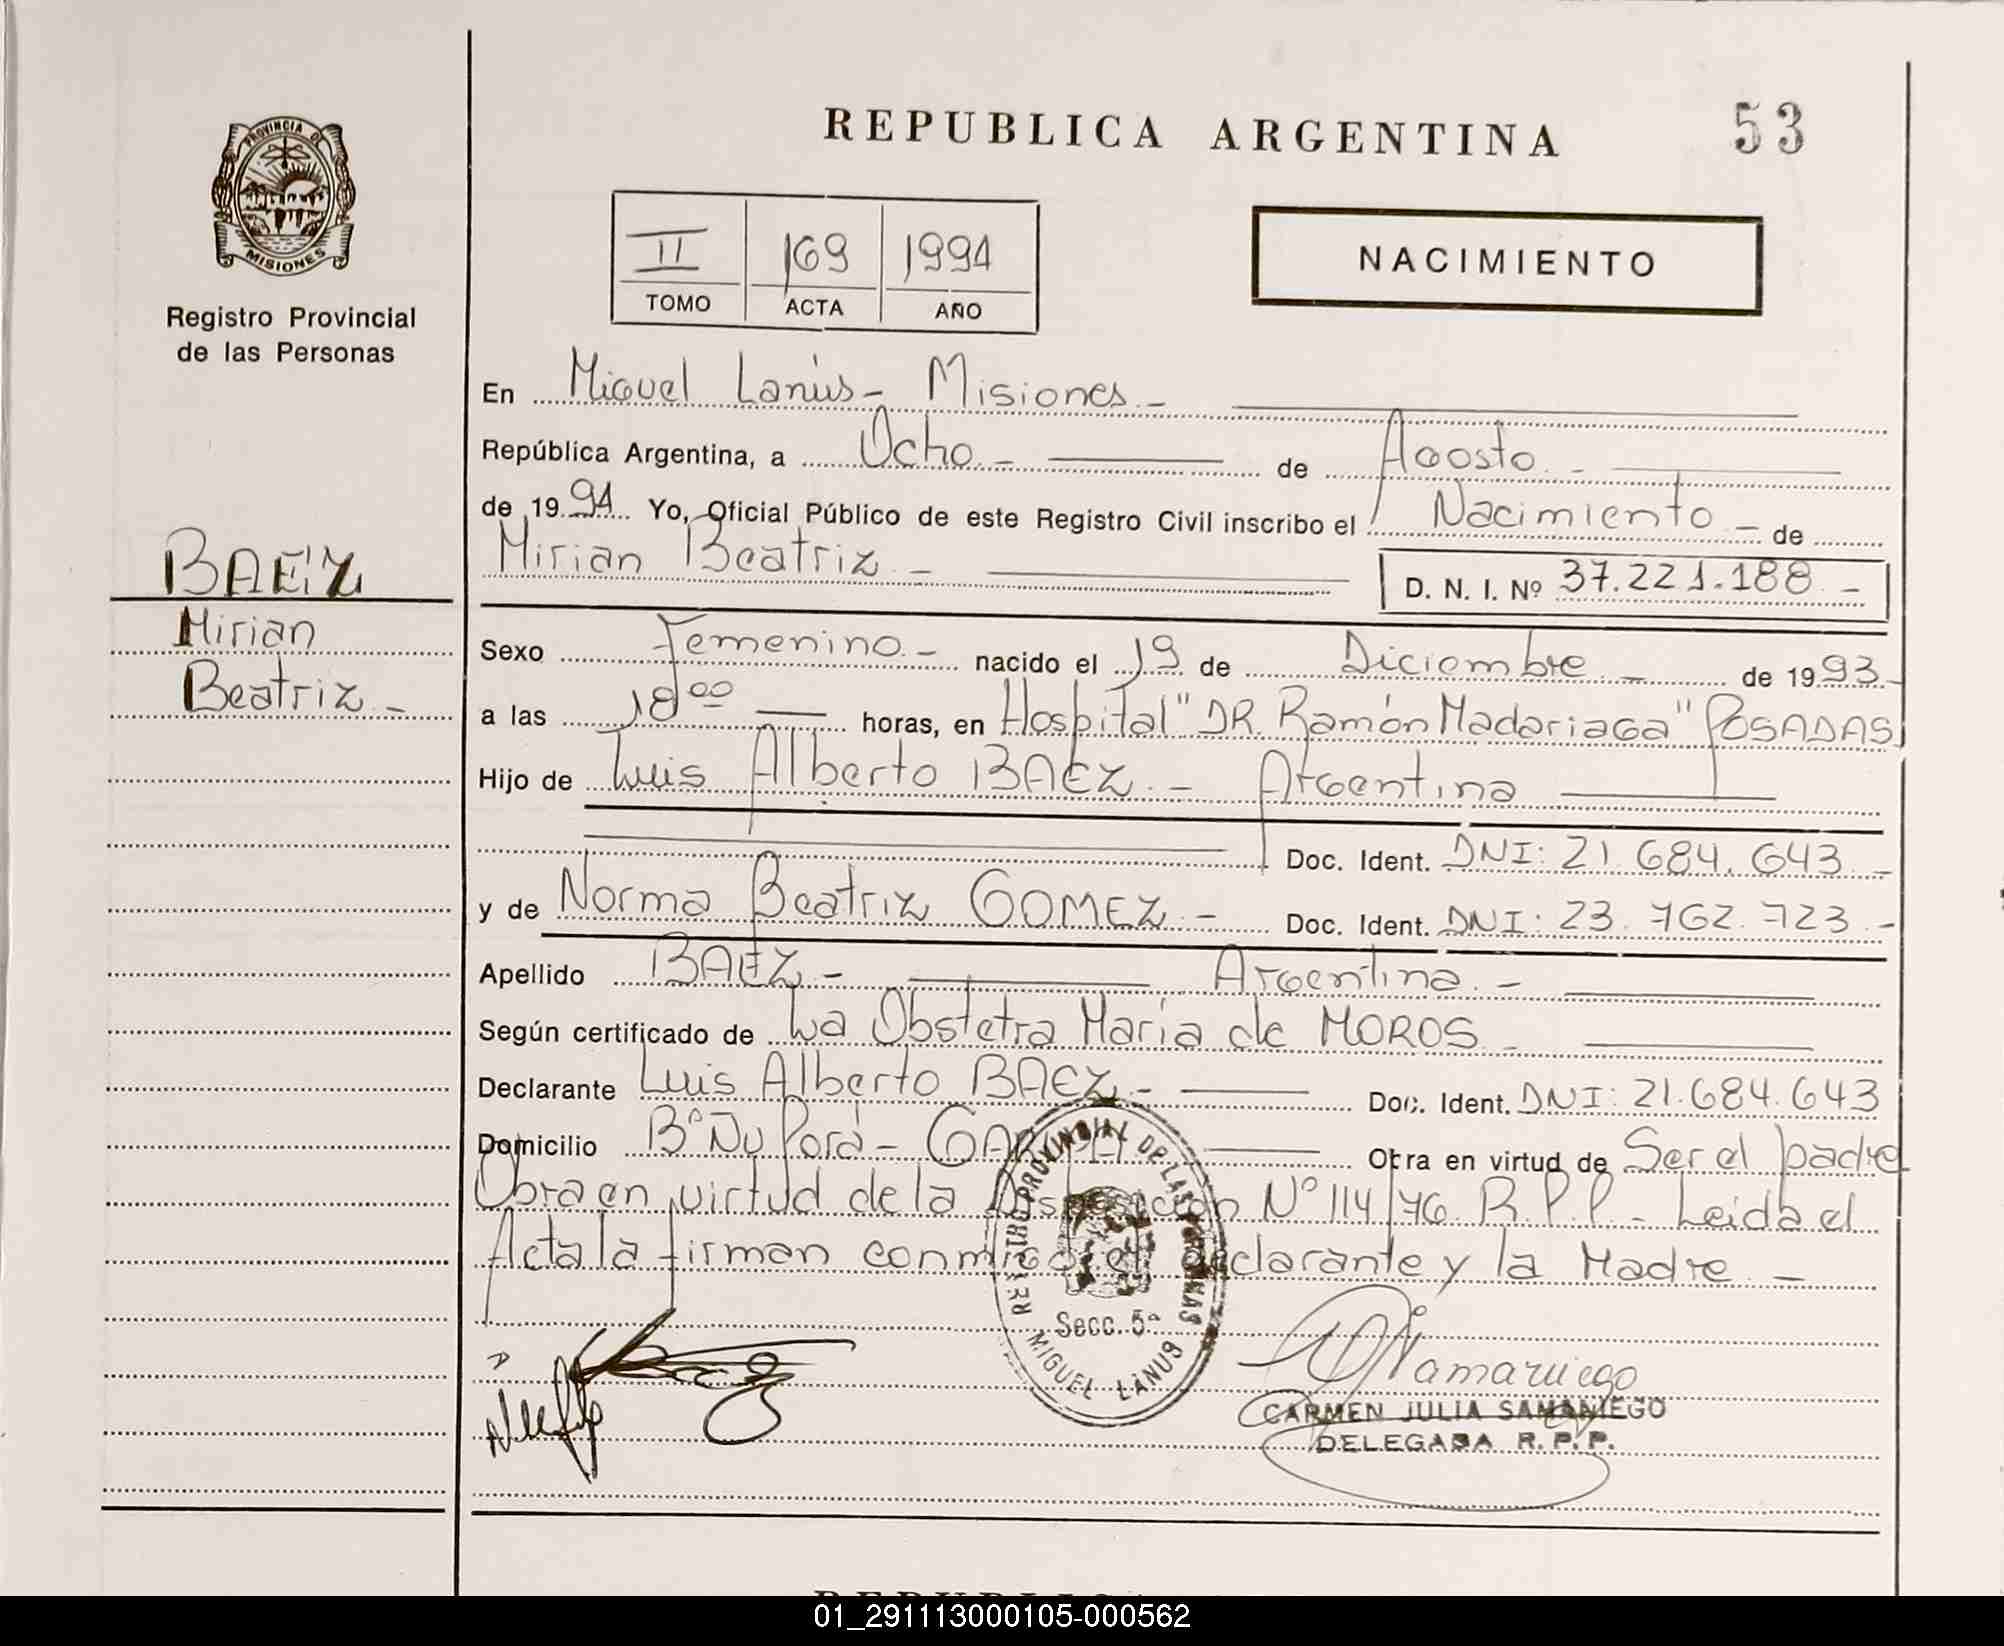 REPUBLICA ARGENTINA
53
PROVINCIA DE
MISIONES
Registro Provincial
de las Personas
II 169 1994
TOMO ACTA AÑO
NACIMIENTO
En Miguel Lanús - Misiones -
República Argentina, a Ocho - de Agosto -
de 1994 Yo, Oficial Público de este Registro Civil inscribo el Nacimiento - de
Mirian Beatriz - D. N. I. Nº 37.221.188 -
BAEZ
Mirian
Beatriz -
Sexo Femenino - nacido el 19 de Diciembre - de 1993 -
a las 18 00 horas, en Hospital "DR. Ramón Madariaga" POSADAS
Hijo de Luis Alberto BAEZ - Argentina
Doc. Ident. DNI: 21.684.643 -
y de Norma Beatriz GOMEZ - Doc. Ident. DNI: 23.762.723 -
Apellido BAEZ - Argentina -
Según certificado de La Obstetra Maria de MOROS -
Declarante Luis Alberto BAEZ - Doc. Ident. DNI: 21.684.643
Domicilio Bº Ñu Porá - Otra en virtud de Ser el padre
Obra en virtud de la Disposición Nº 114/76 R.P.P. - Leida el
Acta la firman conmigo el declarante y la Madre -
REGISTRO PROVINCIAL DE LAS PERSONAS
Secc. 5ª
MIGUEL LANUS
CARMEN JULIA SAMANIEGO
DELEGADA R. P. P.
01_291113000105-000562